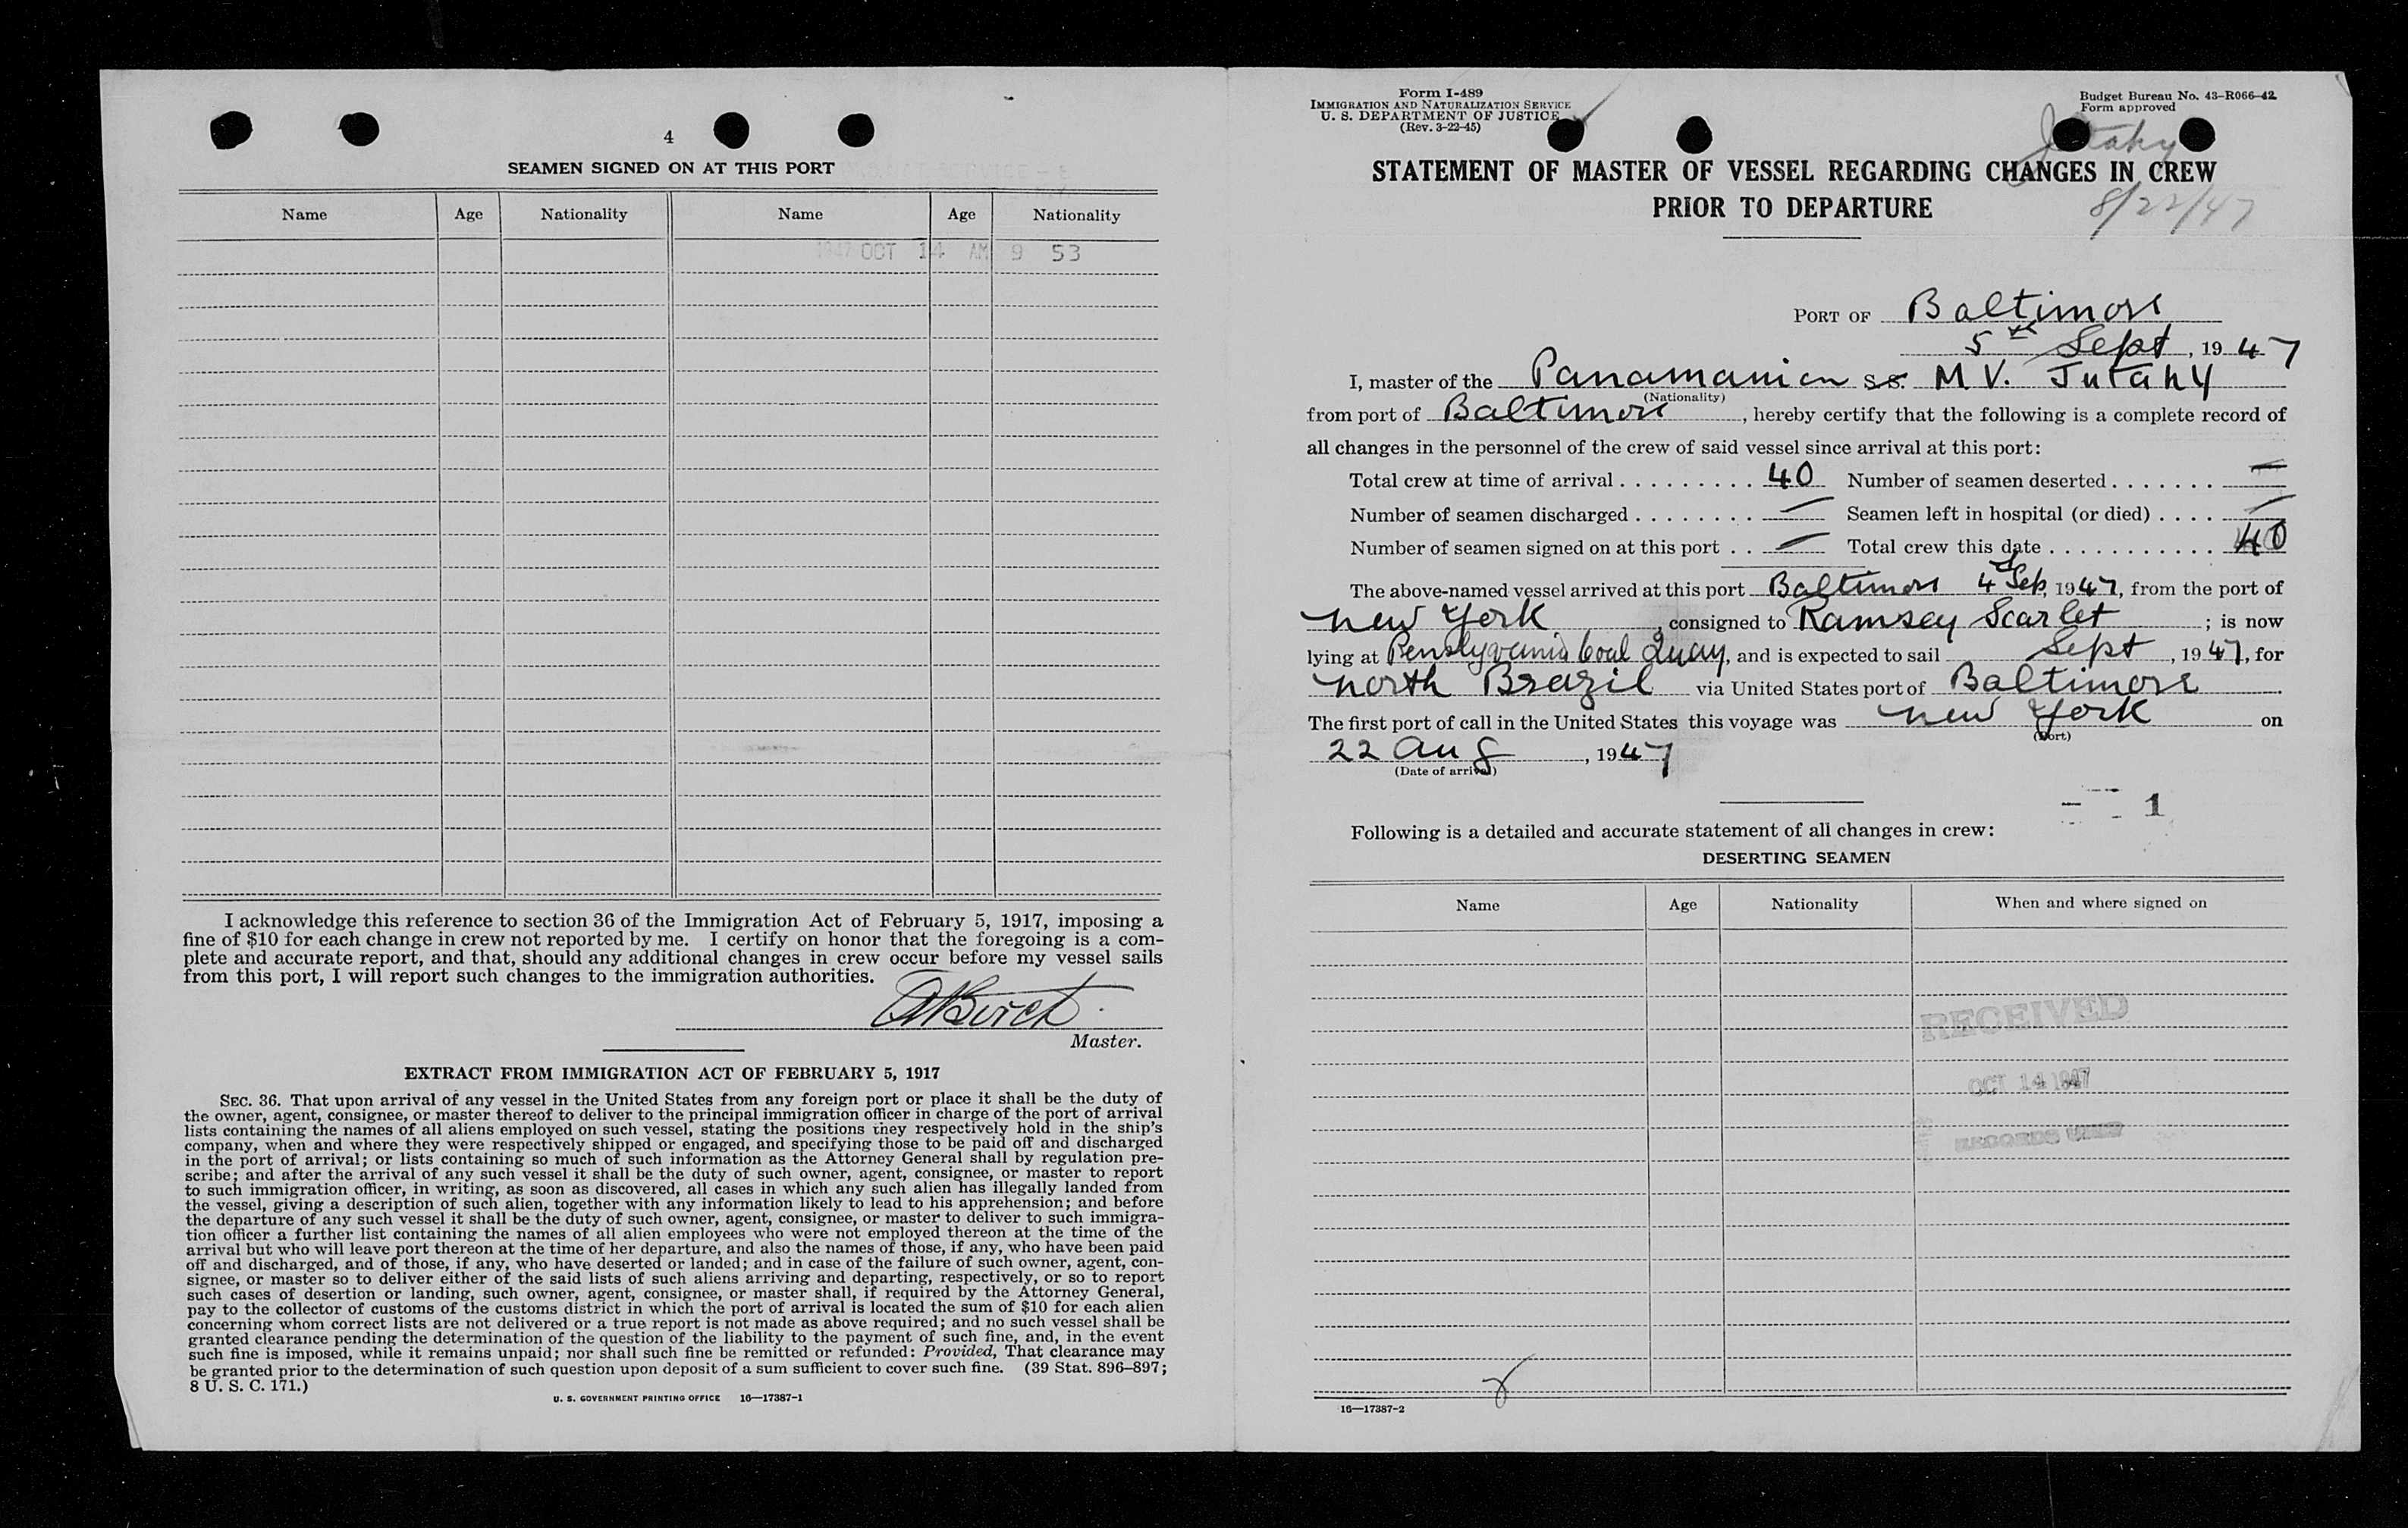 4
SEAMEN SIGNED ON AT THIS PORT
Name Age Nationality Name Age Nationality
1947 OCT 14 AM 9 53
I acknowledge this reference to section 36 of the Immigration Act of February 5, 1917, imposing a
fine of $10 for each change in crew not reported by me. I certify on honor that the foregoing is a com-
plete and accurate report, and that, should any additional changes in crew occur before my vessel sails
from this port, I will report such changes to the immigration authorities.
Birch
Master.
EXTRACT FROM IMMIGRATION ACT OF FEBRUARY 5, 1917
SEC. 36. That upon arrival of any vessel in the United States from any foreign port or place it shall be the duty of
the owner, agent, consignee, or master thereof to deliver to the principal immigration officer in charge of the port of arrival
lists containing the names of all aliens employed on such vessel, stating the positions they respectively hold in the ship's
company, when and where they were respectively shipped or engaged, and specifying those to be paid off and discharged
in the port of arrival; or lists containing so much of such information as the Attorney General shall by regulation pre-
scribe; and after the arrival of any such vessel it shall be the duty of such owner, agent, consignee, or master to report
to such immigration officer, in writing, as soon as discovered, all cases in which any such alien has illegally landed from
the vessel, giving a description of such alien, together with any information likely to lead to his apprehension; and before
the departure of any such vessel it shall be the duty of such owner, agent, consignee, or master to deliver to such immigra-
tion officer a further list containing the names of all alien employees who were not employed thereon at the time of the
arrival but who will leave port thereon at the time of her departure, and also the names of those, if any, who have been paid
off and discharged, and of those, if any, who have deserted or landed; and in case of the failure of such owner, agent, con-
signee, or master so to deliver either of the said lists of such aliens arriving and departing, respectively, or so to report
such cases of desertion or landing, such owner, agent, consignee, or master shall, if required by the Attorney General,
pay to the collector of customs of the customs district in which the port of arrival is located the sum of $10 for each alien
concerning whom correct lists are not delivered or a true report is not made as above required; and no such vessel shall be
granted clearance pending the determination of the question of the liability to the payment of such fine, and, in the event
such fine is imposed, while it remains unpaid; nor shall such fine be remitted or refunded: Provided, That clearance may
be granted prior to the determination of such question upon deposit of a sum sufficient to cover such fine. (39 Stat. 896–897;
8 U. S. C. 171.)
U. S. GOVERNMENT PRINTING OFFICE 16—17387-1
Form I-489
IMMIGRATION AND NATURALIZATION SERVICE
U. S. DEPARTMENT OF JUSTICE
(Rev. 3-22-45)
Budget Bureau No. 43–R066–42
Form approved
Jutahy
STATEMENT OF MASTER OF VESSEL REGARDING CHANGES IN CREW
PRIOR TO DEPARTURE
8/22/47
PORT OF Baltimore
5th Sept, 1947
I, master of the Panamanian S.S. M V. Jutahy
(Nationality)
from port of Baltimore, hereby certify that the following is a complete record of
all changes in the personnel of the crew of said vessel since arrival at this port:
Total crew at time of arrival . . . . . . . . . 40 Number of seamen deserted . . . . . . . —
Number of seamen discharged . . . . . . . . — Seamen left in hospital (or died) . . . . —
Number of seamen signed on at this port . . — Total crew this date . . . . . . . . . . . . 40
The above-named vessel arrived at this port Baltimore 4th Sep, 1947, from the port of
New York, consigned to Ramsey Scarlet; is now
lying at Penslyvania Coal Quay, and is expected to sail Sept, 1947, for
North Brazil via United States port of Baltimore.
The first port of call in the United States this voyage was New York on
(Port)
22 Aug, 1947
(Date of arrival)
1
Following is a detailed and accurate statement of all changes in crew:
DESERTING SEAMEN
Name Age Nationality When and where signed on
RECEIVED
OCT 14 1947
RECORDS UNIT
16—17387-2